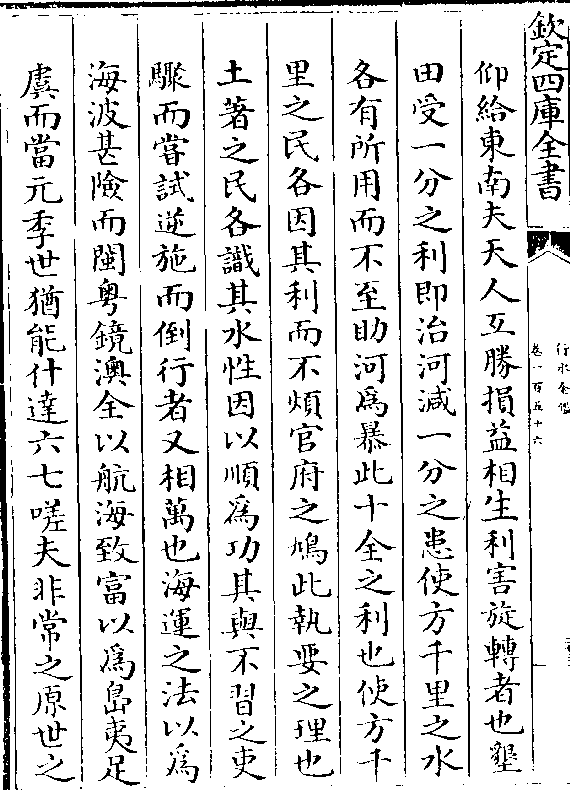 欽定四庫全書
行水金鑑
卷一百五十六
仰給東南夫天人互勝損益相生利害旋轉者也墾
田受一分之利即治河減一分之患使方千里之水
各有所用而不至助河為暴此十全之利也使方千
里之民各因其利而不煩官府之鳩此執要之理也
土著之民各識其水性因以順為功其與不習之吏
驟而嘗試逆施而倒行者又相萬也海運之法以為
海波甚險而閩粤鏡澳全以航海致富以為島夷足
虞而當元季世猶能什達六七嗟夫非常之原世之